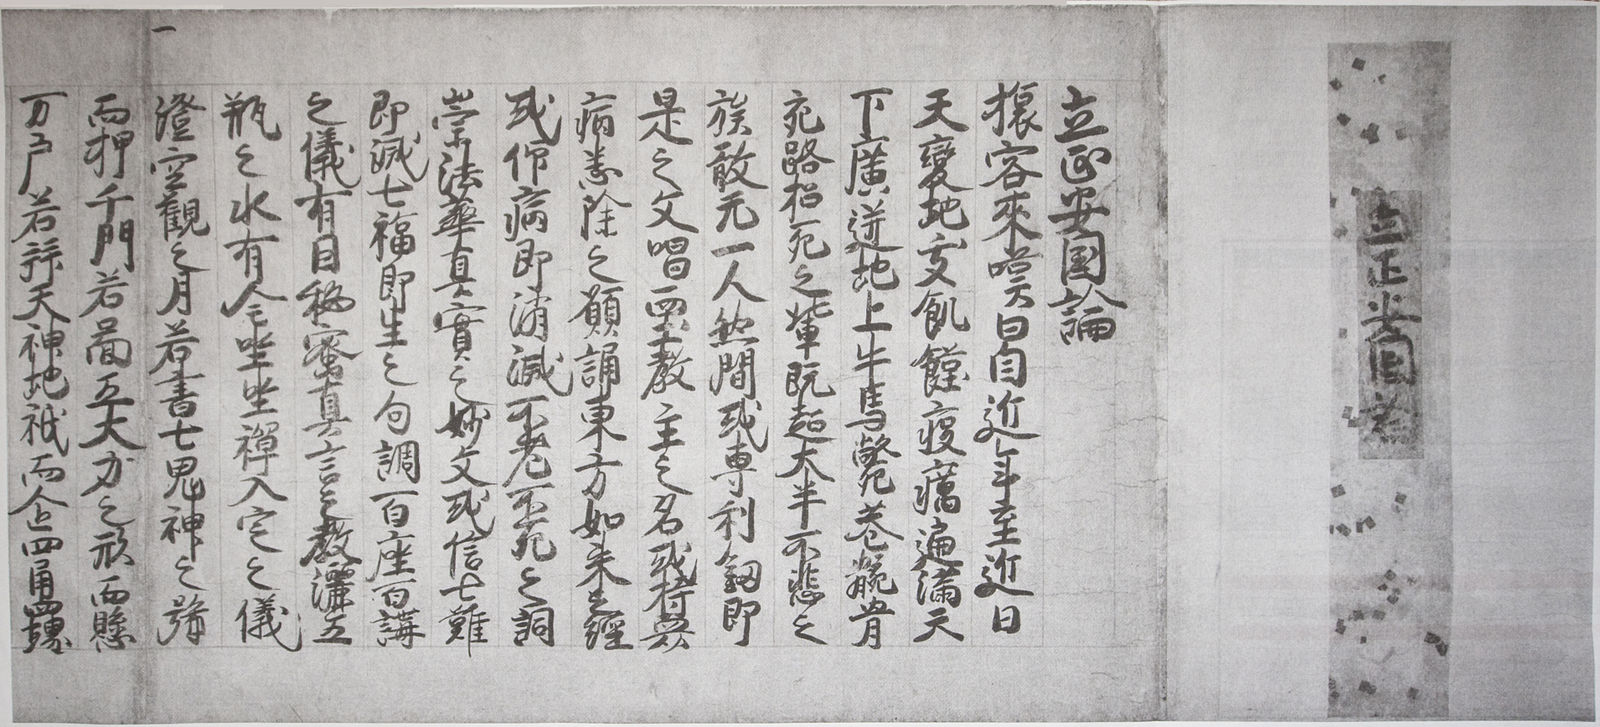 立正安国論
立正安国論
旅客來嘆曰自近年至近日
天變地夭飢饉疫癘遍滿天
下廣迸地上牛馬斃巷骸骨
充路招死之輩既超大半不悲之
族敢无一人然間或専利釼即
是之文唱西土教主之名或持衆
病悉除之願誦東方如来之經
或仰病即消滅不老不死之詞
崇法華真實之妙文或信七難
即滅七福即生之句調百座百講
之儀有因秘蜜真言之教灑五
瓶之水有全坐坐禪入定之儀
澄空觀之月若書七鬼神之號
而押千門若啚五大力之形而懸
万戸若拜天神地祇而企四角四堺